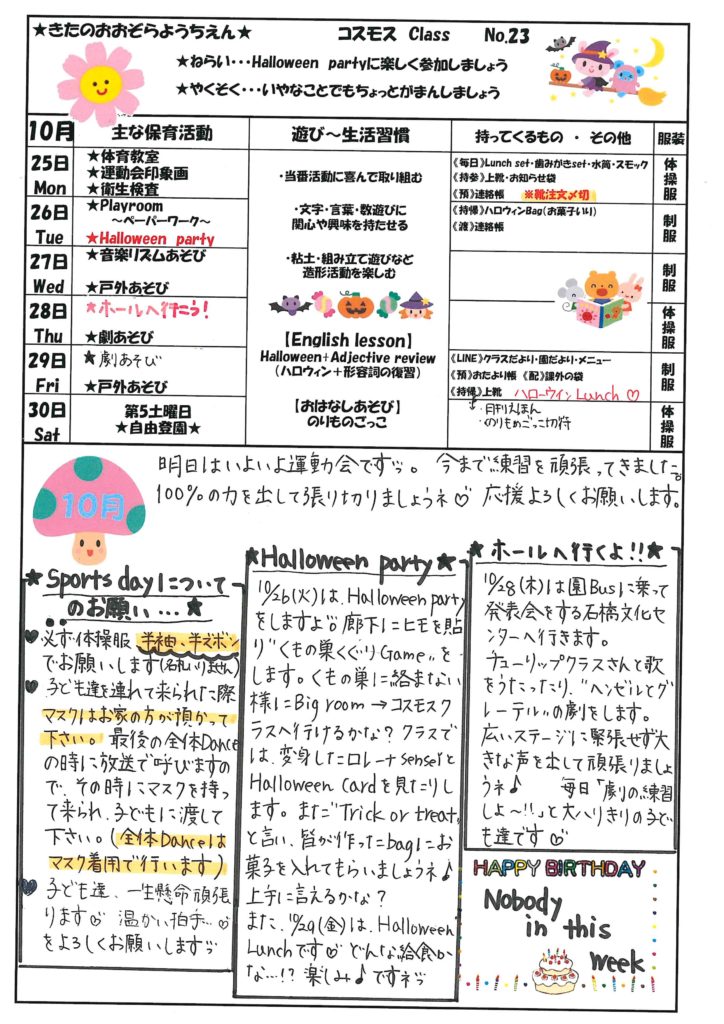 ★きたのおおぞらようちえん★ コスモス Class No.23
★ねらい・・・Halloween partyに楽しく参加しましょう
★やくそく・・・いやなことでもちょっとがまんしましょう
10月 主な保育活動 遊び～生活習慣 持ってくるもの ・ その他 服装
25日 Mon
★体育教室
★運動会印象画
★衛生検査
《毎日》Lunch set・歯みがきset・水筒・スモック
《持参》上靴・お知らせ袋
《預》連絡帳 ※靴注文〆切
体操服
26日 Tue
★Playroom
～ペーパーワーク～
★Halloween party
《持帰》ハロウィンBag(お菓子いり)
《渡》連絡帳
制服
27日 Wed
★音楽リズムあそび
★戸外あそび
制服
28日 Thu
★ホールへ行こう!
★劇あそび
体操服
29日 Fri
★劇あそび
★戸外あそび
《LINE》クラスだより・園だより・メニュー
《預》おたより帳 《配》課外の袋
《持帰》上靴 ハローウィン Lunch ♡
・月刊えほん
・のりものごっこ切符
制服
30日 Sat
第5土曜日
★自由登園★
体操服
・当番活動に喜んで取り組む
・文字・言葉・数遊びに
関心や興味を持たせる
・粘土・組み立て遊びなど
造形活動を楽しむ
【English lesson】
Halloween+Adjective review
(ハロウィン+形容詞の復習)
【おはなしあそび】
のりものごっこ
10月
明日はいよいよ運動会ですッ。今まで練習を頑張ってきました。
100%の力を出して張り切りましょうネ♡ 応援よろしくお願いします。
★Sports dayについて
のお願い…★
♥必ず体操服 半袖、半ズボン
でお願いします(名札いりません)
♥子ども達を連れて来られた際
マスクはお家の方が預かって
下さい。最後の全体Dance
の時に放送で呼びますの
で、その時にマスクを持っ
て来られ、子どもに渡して
下さい。(全体Danceは
マスク着用で行います)
♥子ども達、一生懸命頑張
ります♡ 温かい拍手…♡
をよろしくお願いしますッ
★Halloween party★
10/26(火)は、Halloween party
をしますよ♡。廊下にヒモを貼
り"くもの巣くぐりGame"を
します。くもの巣に絡まない
様にBig room→コスモスク
ラスへ行けるかな?クラスで
は、変身したロレーナsenseiと
Halloween Cardを見たりし
ます。また"Trick or treat"
と言い、皆が作ったbagにお
菓子を入れてもらいましょうネ♪
上手に言えるかな?
また、10/29(金)は、Halloween
Lunchです♡ どんな給食か
な…!? 楽しみ♪ですネッ
★ホールへ行くよ!!★
10/28(木)は園Busに乗って
発表会をする石橋文化セ
ンターへ行きます。
チューリップクラスさんと歌
をうたったり、"ヘンゼルとグ
レーテル"の劇をします。
広いステージに緊張せず大
きな声を出して頑張りましょ
うネ♪ 毎日「劇の練習
しよ～!!」と大ハリきりの子ど
も達です♡
HAPPY BIRTHDAY
Nobody
in this
week